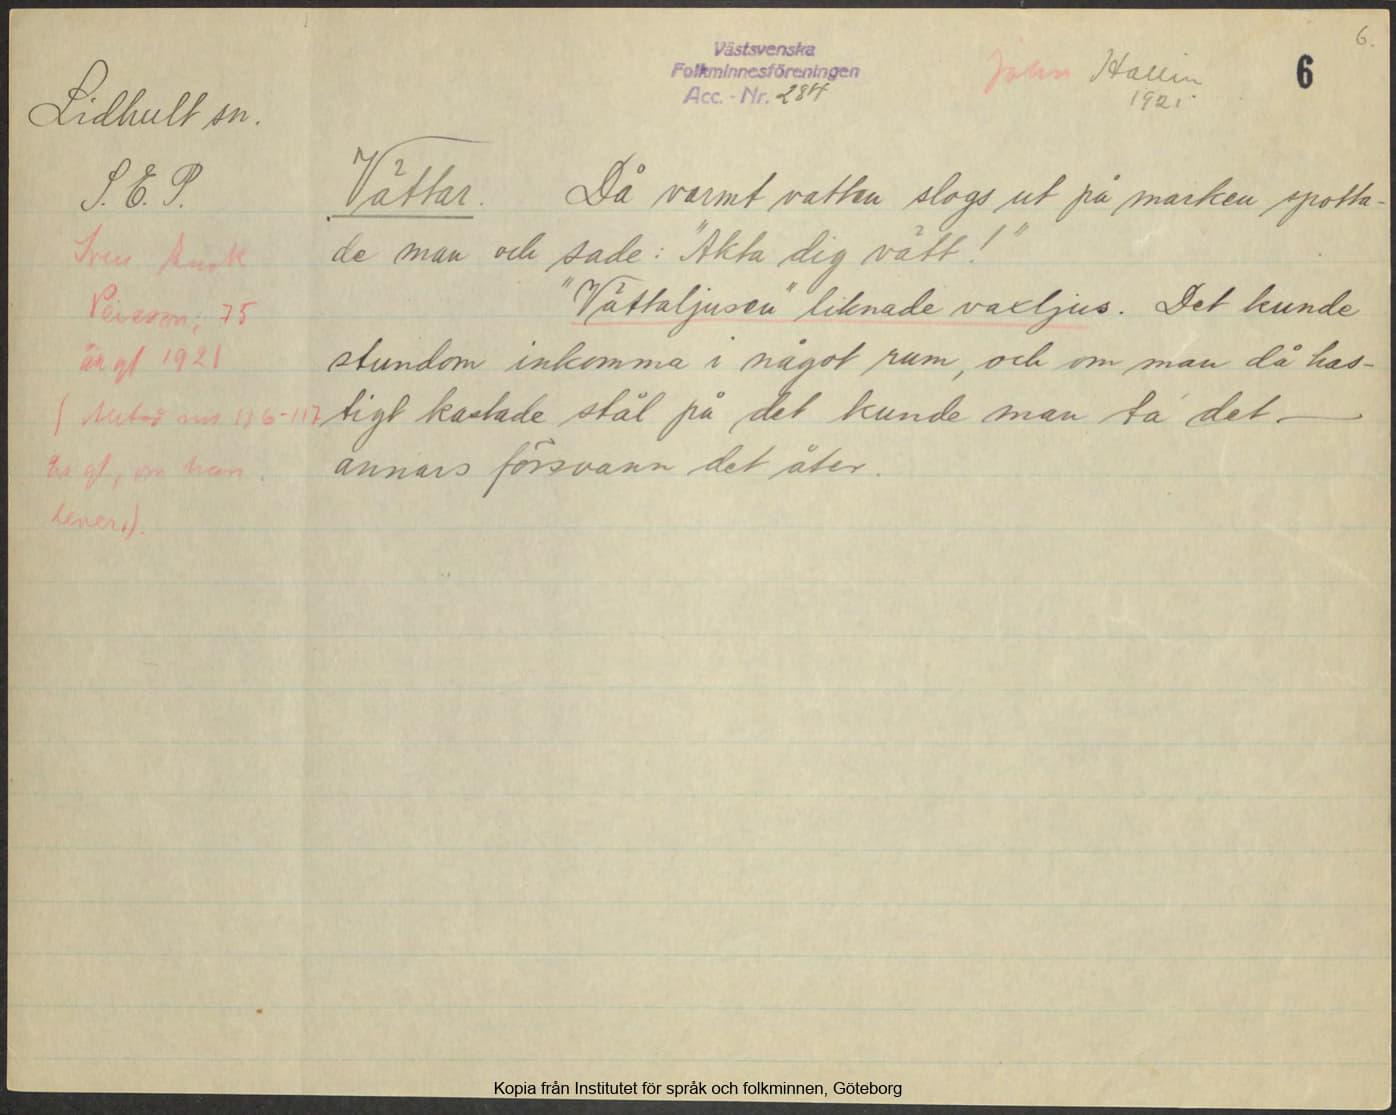 6.
Västsvenska
Folkminnesföreningen
Acc. - Nr. 284
John Hallin
1921
6
Lidhult sn.
S. E. P.
Sven
75
år gl 1921
( 116-117
år gl, om han
lever.).
Vättar. Då varmt vatten slogs ut på marken spotta-
de man och sade: "Akta dig vätt!"
"Vättaljusen" liknade vaxljus. Det kunde
stundom inkomma i något rum, och om man då has-
tigt kastade stål på det kunde man ta det —
annars försvann det åter.
Kopia från Institutet för språk och folkminnen, Göteborg